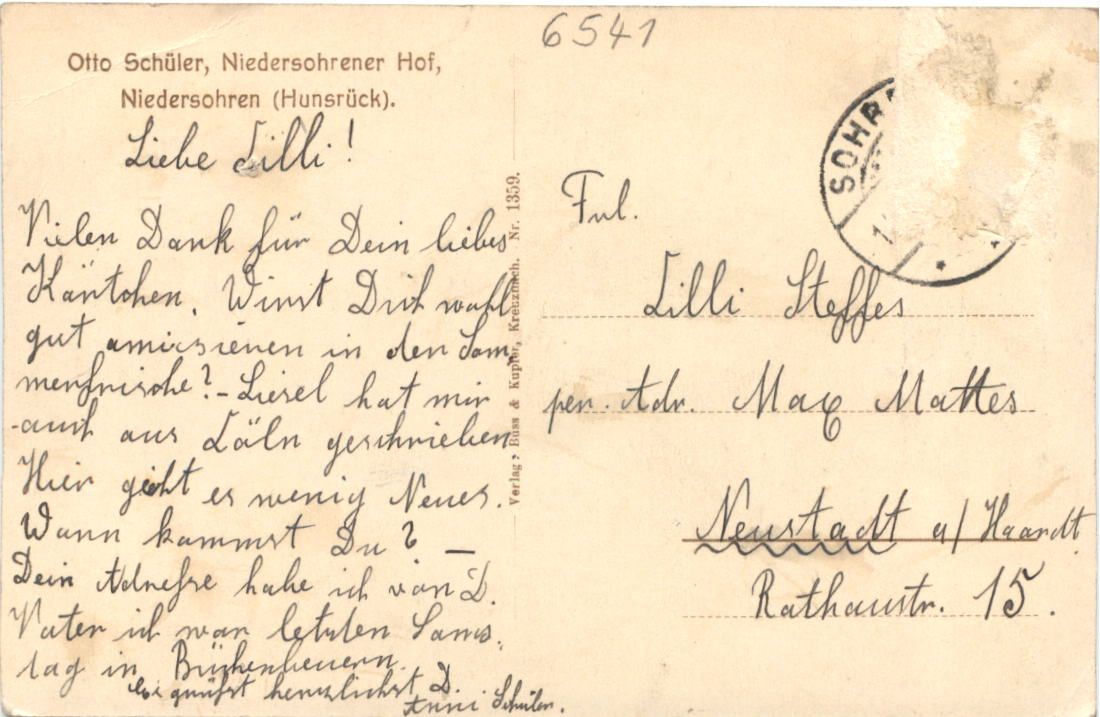 6541
Otto Schüler, Niedersohrener Hof,
Niedersohren (Hunsrück).
Liebe Lilli!
Vielen Dank für Dein liebes
Kärtchen. Wirst Dich wohl
gut amüsieren in der Som-
merfrische? - Liesel hat mir
auch aus Cöln geschrieben
Hier gibt es wenig Neues.
Wann kommst Du? —
Dein Adresse habe ich von D.
Vater ich war letzten Sams-
tag in Büchenbeuern.
Es grüßt herzlichst D.
Anni Schüler.
Verlag: Buss & Kupfer, Kreuznach. Nr. 1359.
SOHR
Frl.
Lilli Steffes
per. Adr. Max Mattes
Neustadt a/Haardt
Rathausstr. 15.